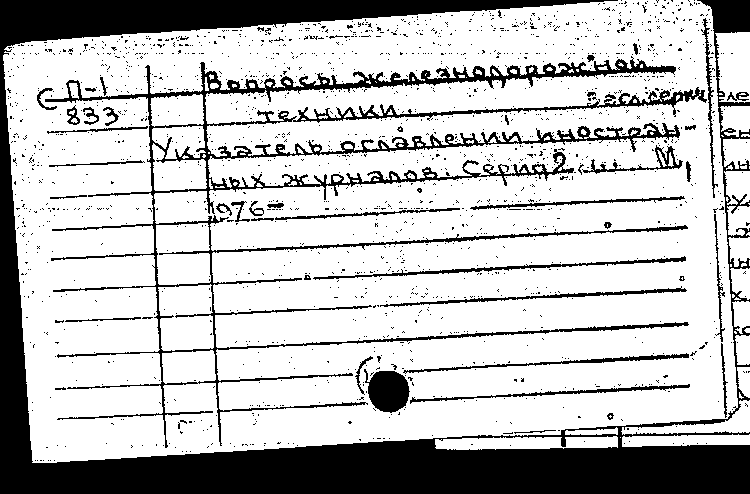 С П-1 Вопросы железнодорожной
833 техники. Загл. серии
Указатель оглавлений иностран-
ных журналов. Серия 2... М,
1976-